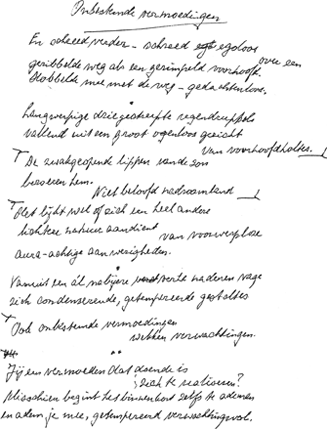 Onbestemde vermoedingen
En schreed verder – schreed egoloos over een
geribbelde weg als een gerimpeld voorhoofd.
Hobbelde mee met de weg – gedachtenloos.
Langwerpige driegestreepte regendruppels
vallend uit een groot ogenloos gezicht
van voorhoofdholtes.
De zwakgeopende lippen van de zon
bezweren hem.
Niet beloofd nadroomland
Het lijkt wel of zich een heel andere
lichtere natuur aandient
van voorwerploze
aura-achtige aanwezigheden.
Vanuit een al nabijere verte naderen vage
zich condenserende, getempereerde gestaltes
Ook onbestemde vermoedingen
wekken verwachtingen.
Jij een vermoeden dat doende is
zich te realiseren?
Misschien begint het binnenhout zelfs te ademen
en adem je mee, getempereerd verwachtingsvol.